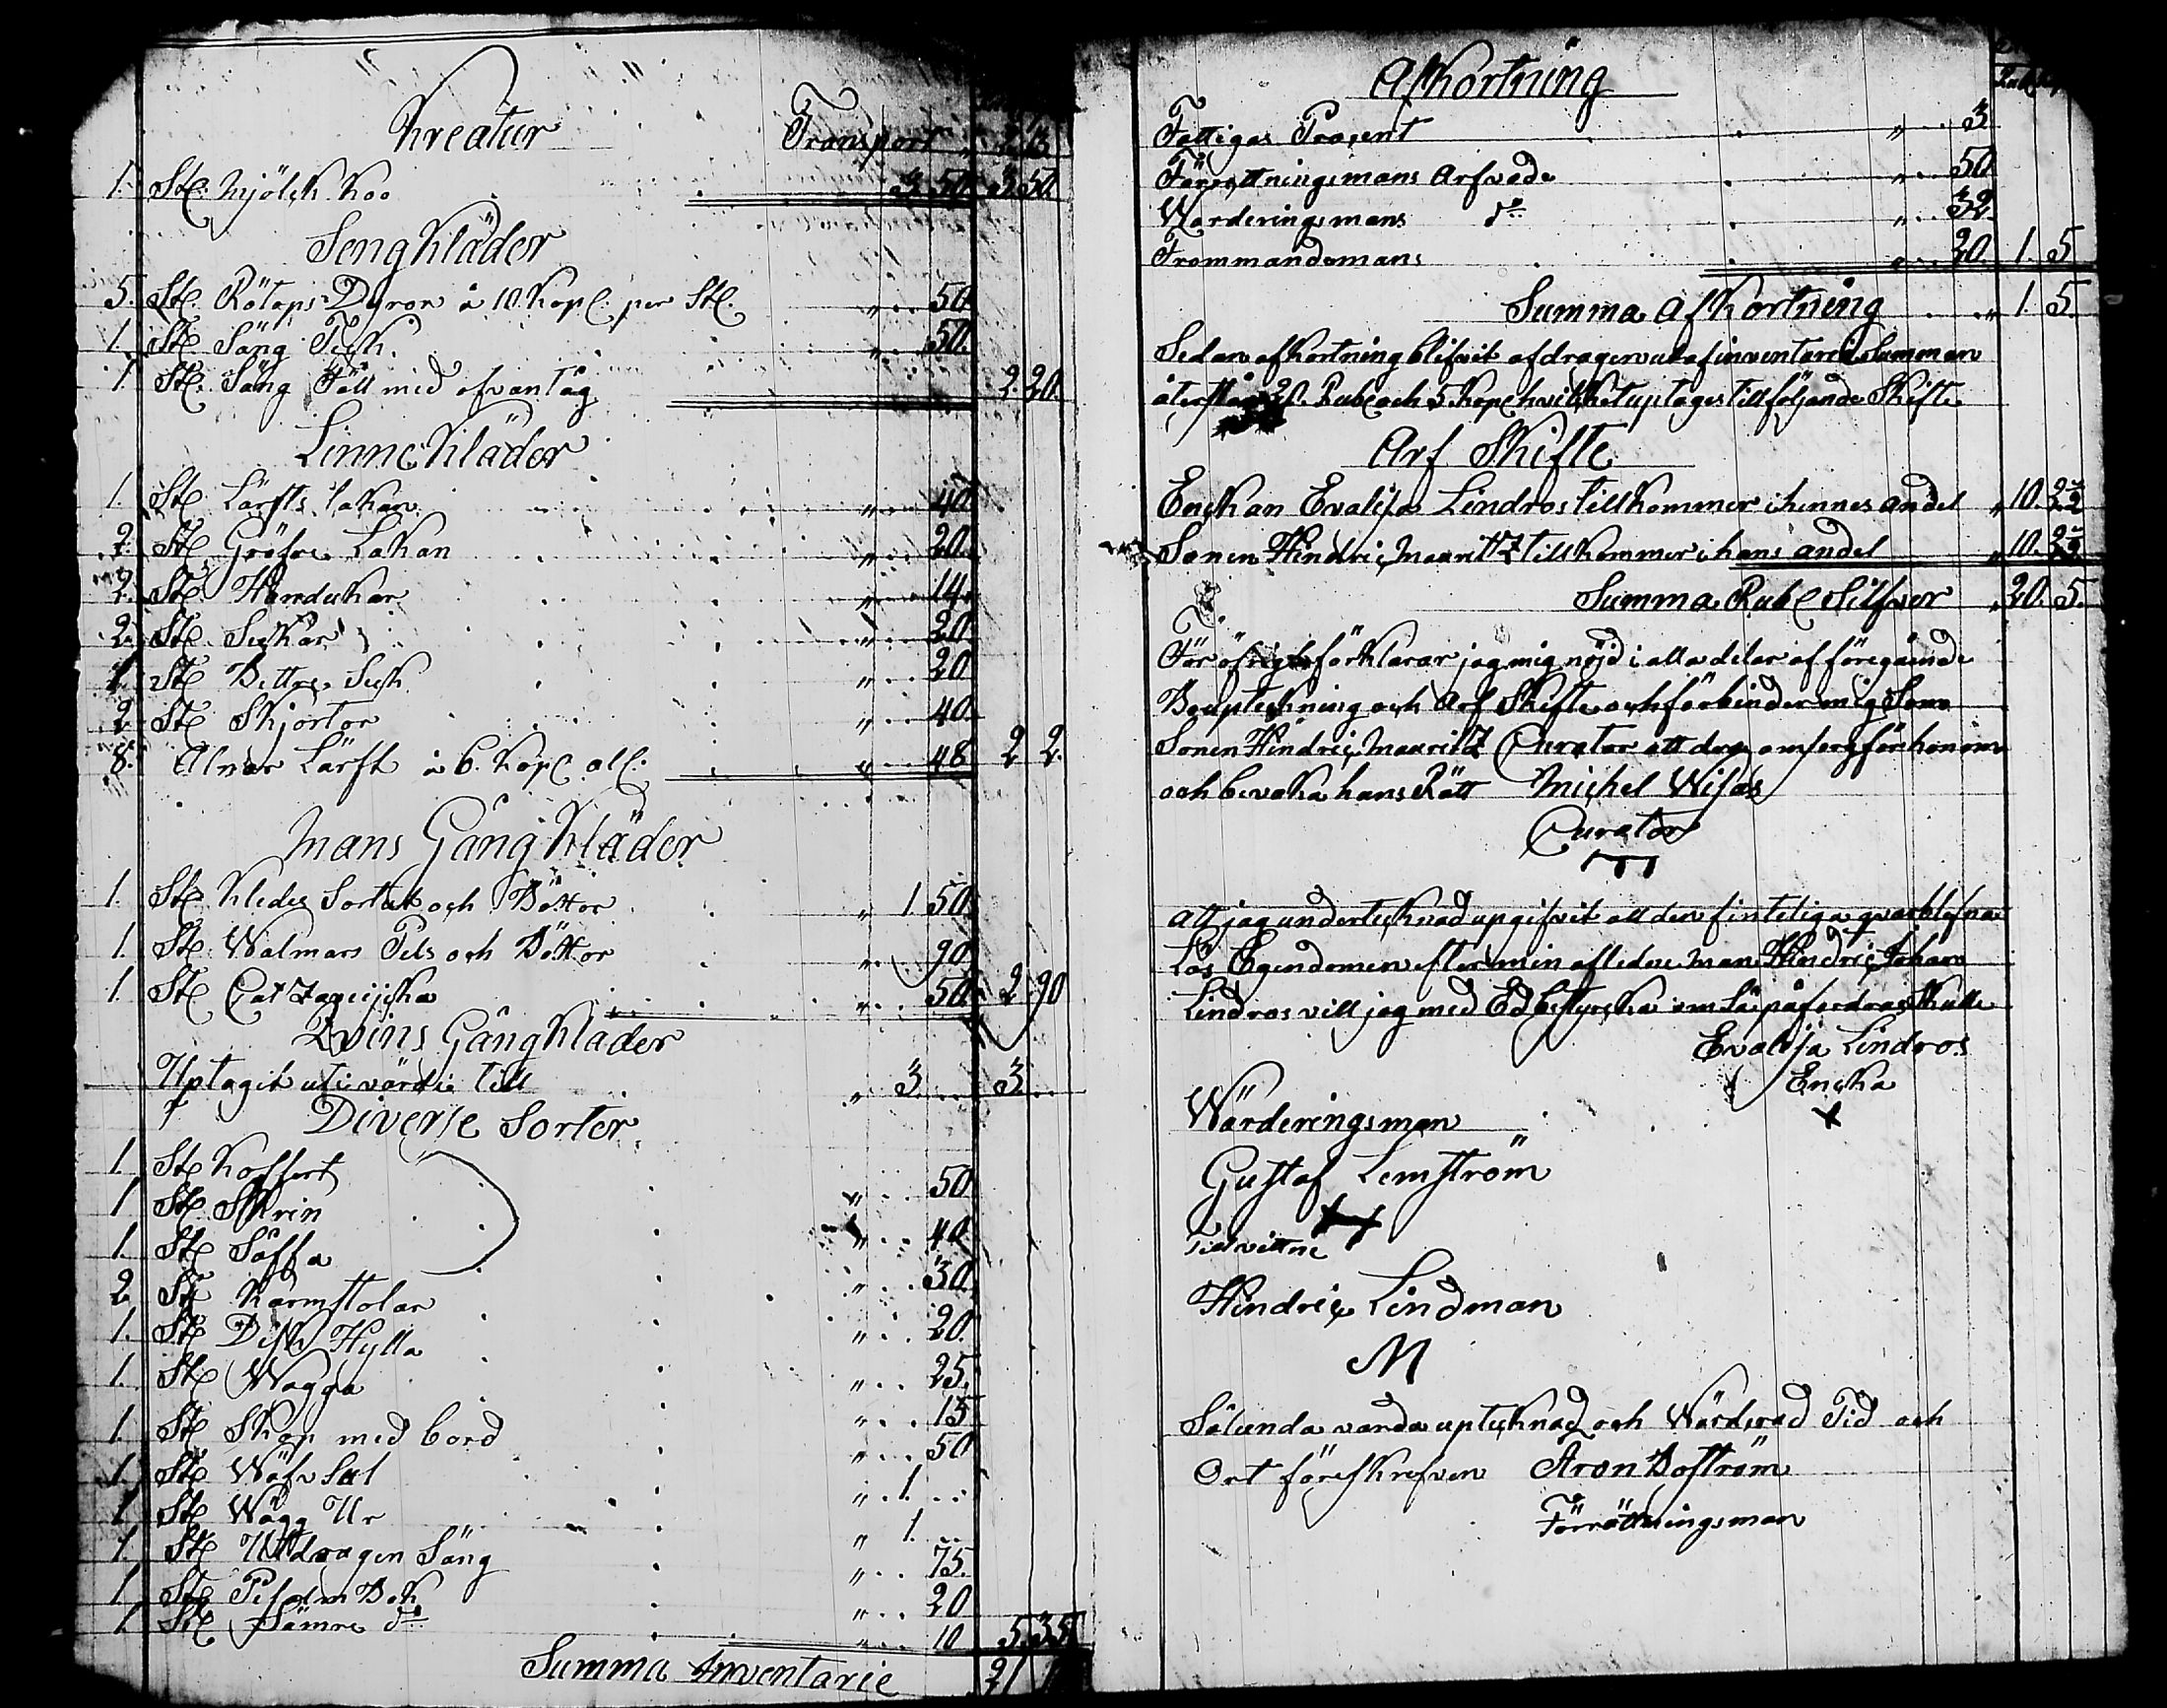 Kreatur Transport " 2 13
1. St: Mjölck Koo 3 50. 3 50.
Sengkläder
5. St. Rötops Dynor a 10. Kop: per St. " 50.
1. St. Säng Teck " 50.
1. St. Säng Fäll med ofvantåg 2. 20.
Linne Kläder
1. St Lärfts Lakan " 40.
2. St Gröfre Lakan " 20.
2. St Handukar " 14
2. St. " 20.
1. St Bettre " 20
2. St Skjortor " 40.
8. Alnar Lärft a 6. Kop al: " 48 2 2.
Mans Gång Kläder
1. St. Kledes Sortut och Böxor " 1 50.
1. St. Walmars Pels och Böxor " 90
1. St " 50. 2 90
Qvins Gång Kläder
Uptagit uti värde till " 3 .. 3 ..
Diverse Sorter
1. St Koffert " 50
1 St Skrin " 40
1. St Såffa " 30.
2. St Karmstolar " 20.
1. St Disk Hylla " 25.
1. St Wagga " 15
1. St Skap med bord " 50
1. St Wäf Sal " 1. ..
1 St Wägg Ur " 1. ..
1. St Utdragen Säng " 75.
1. St Psalm Bok " 20
1 St Sämre do " 10 5. 35
Summa Inventarie 21
Afkortning
Fattigas Procent " 3
Förrettningsmans Arfvode " 50
Warderingsmans do " 32.
Frammandemans " 20. 1. 5
Summa Afkortning " 1. 5.
Sedan afkortning blifvit afdragen utaf inventarii Summan
återstår 20. Rubl och 5 Kop hvilket uptages till följande Skifte
Arf Skifte
Enckan Evalisa Lindros tillkommer i hennes andel " 10. 2½
Sonen Hindric Mauritz tillkommer i hans andel " 10. 2½
Summa Rubl Silfver " 20. 5.
För öfrigt förklarar jag mig nöjd i alla delar af föregående
Bouptekning och Arf Skifte och förbinder mig Som
Sonen Hindric Mauritz Curator att draga omsorg för honom
och bevaka hans Rätt Michel Wisas
Curator
Att jag undertecknad upgifvit all den fintliga qvarblefna
Lös Egendomen efter min afledne Man Hindric Johan
Lindros vill jag med Ed bestyrcka om så påfordras Skulle
Evalisa Lindros
Encka
X
Wärderingsman
Gustaf Lemström
Tilvittne
Hindric Lindman
M
Sålunda vanda uptecknad och Wärderad Tid och
Ort förefkrefven Aron Boström
Förrättningsman